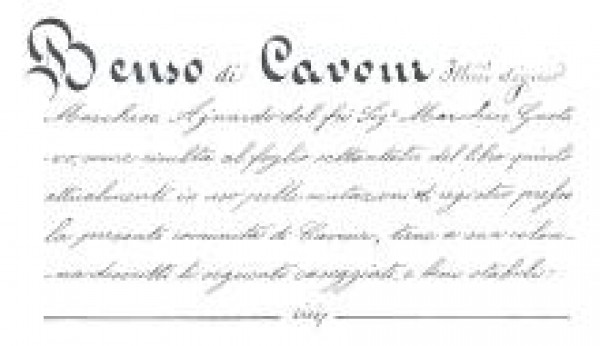 Benso di Cavour Ill.mo Signor
Marchese Aynardo del fu Sig.r Marchese Gusta
vo, come risulta al foglio settantatre del libro quinto
attualmente in uso pelle mutazioni di registro presso
la presente comunità di Cavour, tiene a sua colon-
na descritti li seguenti caseggiati, e beni stabili: